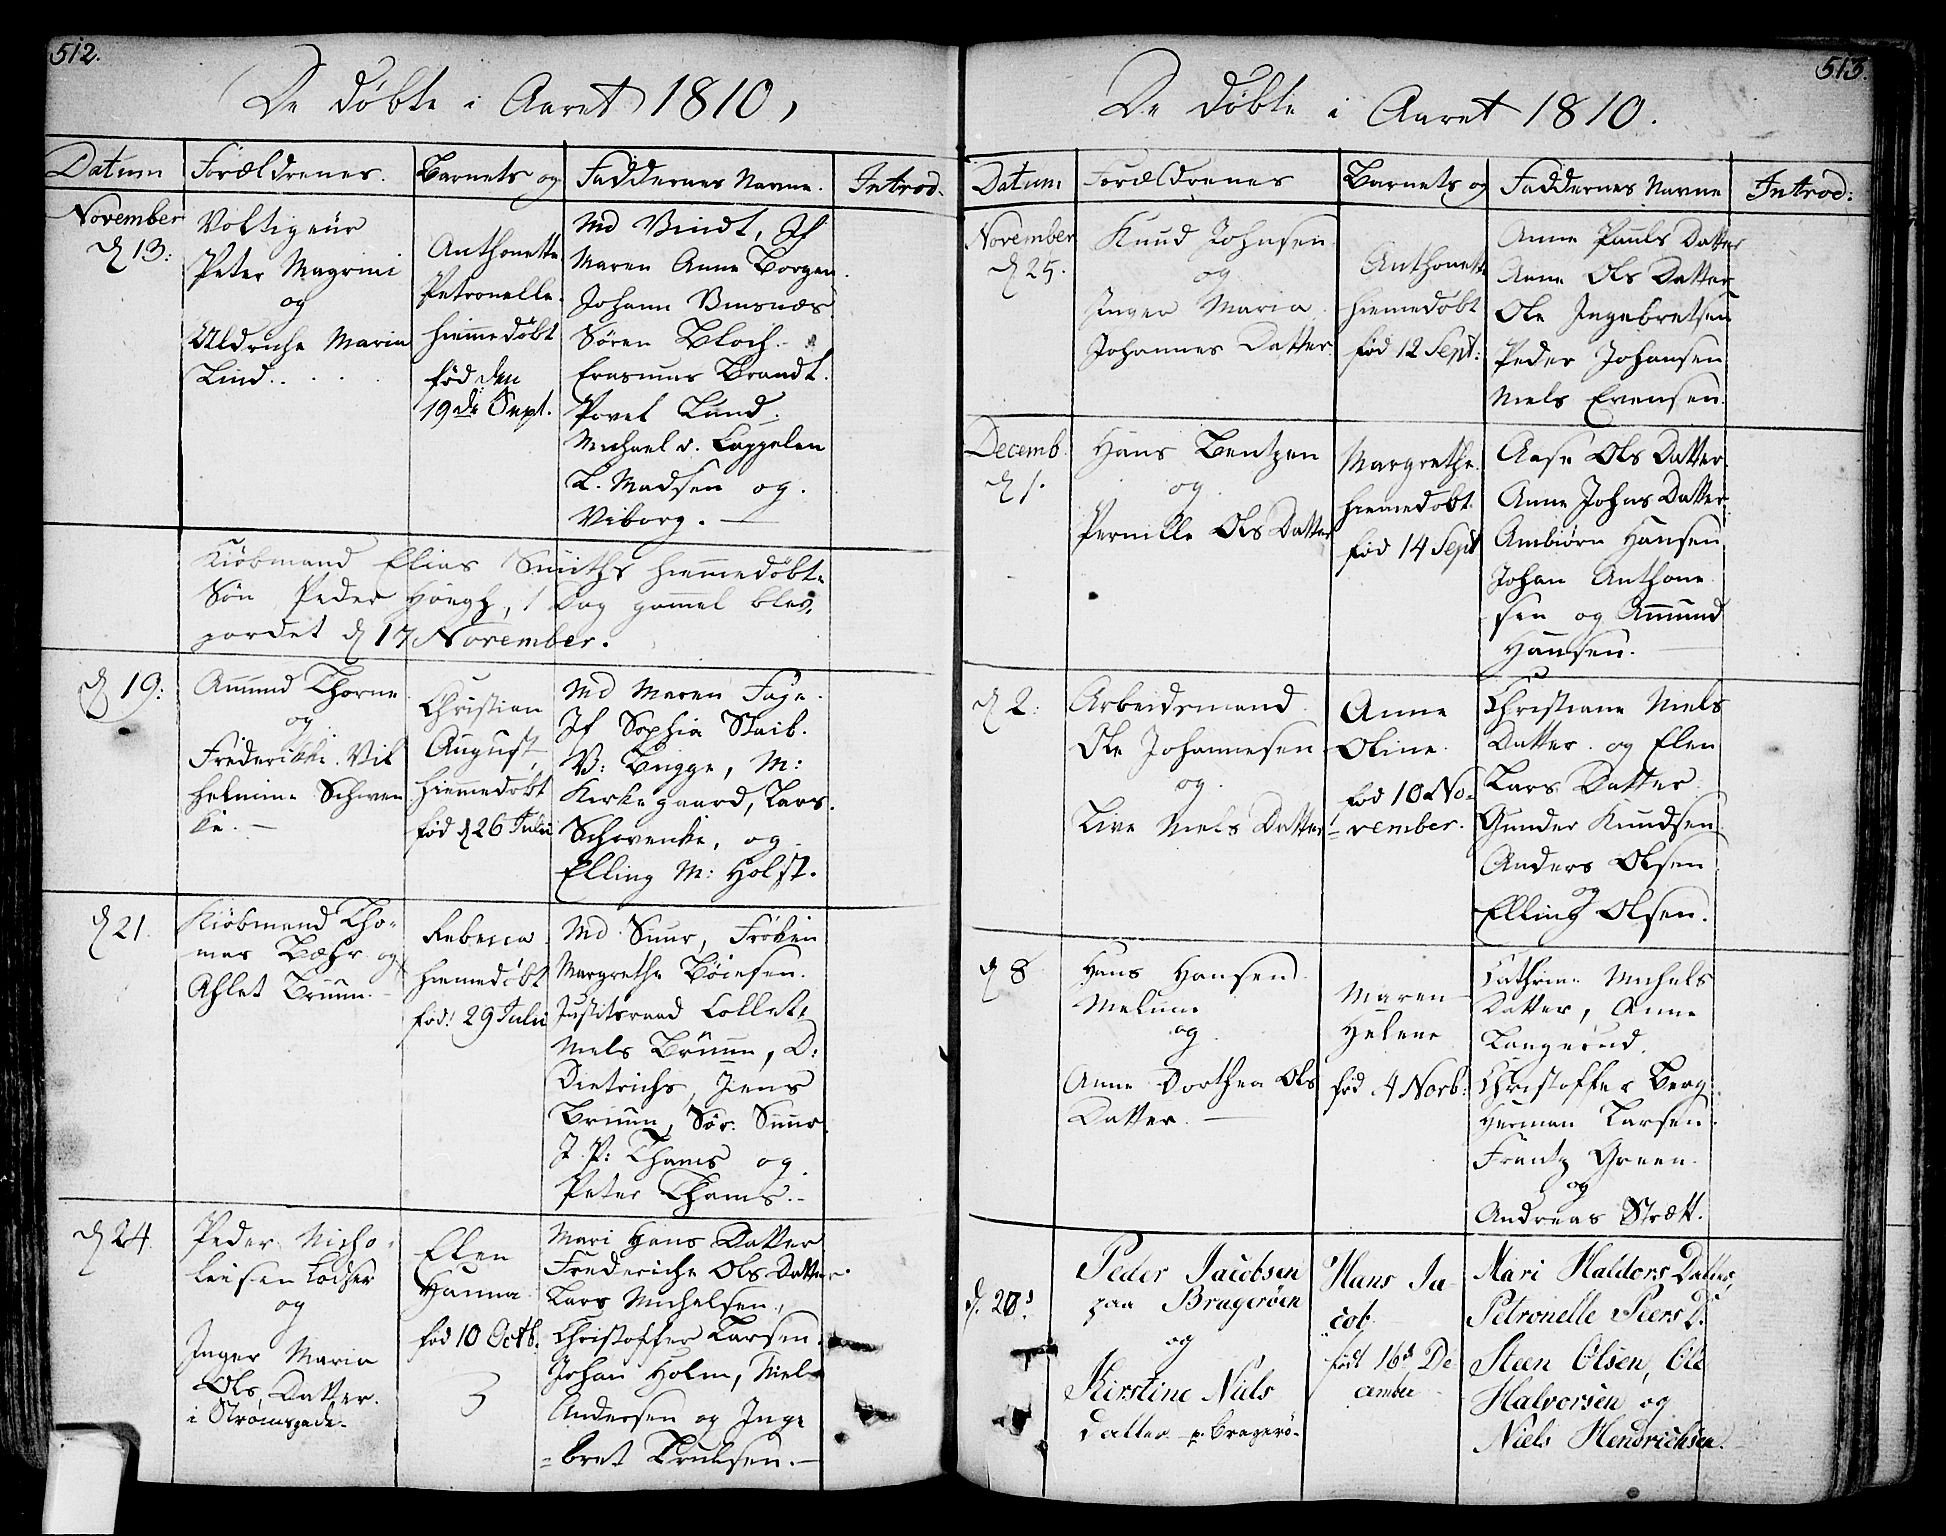 512.
De døbte i Aaret 1810,
Datum Forældrenes. Barnets og Faddernes Navne. Introd.
November
d 13:
Voltigeur
Peter Magrini
og
Uldriche Maria
Lind.
Anthonette
Petronelle.
hiemmedøbt
fød den
19de Sept.
Md Vindt, Jf
Maren Anne Borgen.
Johann Vinsnæs
Søren Bloch.
Erasmus Brandt.
Povel Lund.
Michael v. Cappelen
L. Madsen og.
Viborg.
Kiøbmand Elias Smiths hiemmedøbte
Søn Peder Høegh, 1 Dag gammel blev
jordet d 17 November.
d 19:
Amund Thorne
og
Frederikke Vil
helmine Schwen
ke.
Christian
August,
hiemmedøbt
fød d 26 Julii
Md Maren Faye.
Jf Sophia Staib.
V: Brigge, M:
Kirkegaard, Lars.
Schwenke, og
Elling M: Holst.
d 21.
Kiøbmand Tho-
mas Bæhr og
Ahlet Bruun.
Rebecca
hiemmedøbt
fød: 29 Julii
Md. Suur, Frøken
Margrethe Böiesen.
Justitsraad Collett,
Niels Bruun, D:
Dietrichs, Jens
Bruun, Sør: Suur.
J. P: Thams og
Peter Thams.
d 24.
Peder Nicho-
laisen Lodser
og
Inger Maria
Ols Datter.
i Strømsgade.
Elen
Hanna
fød 10 Octb.
3
Mari Hans Datter
Frederiche Ols Datter.
Lars Michelsen,
Christoffer Larsen.
Johan Holm, Niels
Andersen og Inge
=bret Trulsen.
513.
De døbte i Aaret 1810.
Datum Forældrenes Barnets og Faddernes Navne Introd:
November
d 25.
Knud Johnsen
og
Inger Maria
Johannes Datter
Anthonette
hiemmedøbt
fød 12 Sept:
Anne Pauls Datter
Anne Ols Datter
Ole Ingebretsen
Peder Johansen
Niels Evensen.
Decemb.
d 1.
Hans Bentzen
og
Pernille Ols Datter
Margrethe
hiemmedøbt.
fød 14 Sept
Aase Ols Datter.
Anne Johns Datter.
Ambiørn Hansen
Johan Anthone
sen og Amund
Hansen.
d 2.
Arbeidsmand
Ole Johannesen
og
Live Niels Datter
Anne
Oline.
fød 10 No-
=vember.
Christiane Niels
Datter. og Elen
Lars Datter.
Gunder Knudsen
Anders Olsen
og
Elling Olsen.
d 8
Hans Hansen
Melum
og
Anne Dorthea Ols
Datter.
Maren
Helene
fød 4 Novb:
Cathrine Michels
Datter, Anne
Langerud.
Christoffer Berg
Herman Larsen.
Frantz Green.
og
Andreas Strøtt.
d. 20s
Peder Jacobsen
paa Bragerøen
og
Kirstine Niels
datter p. Bragerø.
Hans Ja-
cob.
født 16d De
cember
Mari Haldors Datter,
Petronelle Peers D.
Steen Olsen, Ole
Halvorsen og
Niels Hendrichsen.